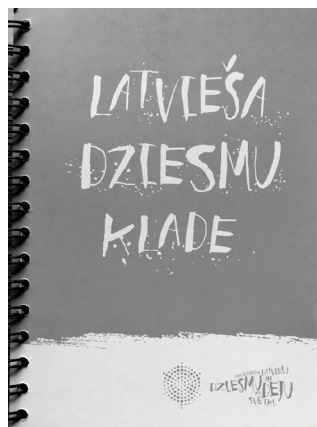 LATVIEŠA
DZIESMU
KLADE
LATVIEŠU
DZIESMU UN
DEJU
SVĒTKI